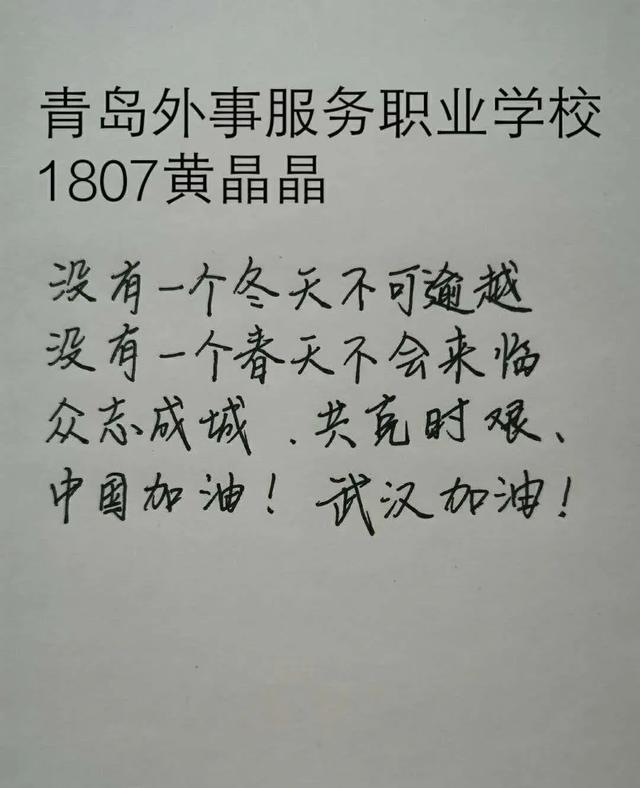 青岛外事服务职业学校
1807黄晶晶
没有一个冬天不可逾越
没有一个春天不会来临
众志成城、共克时艰、
中国加油！武汉加油！